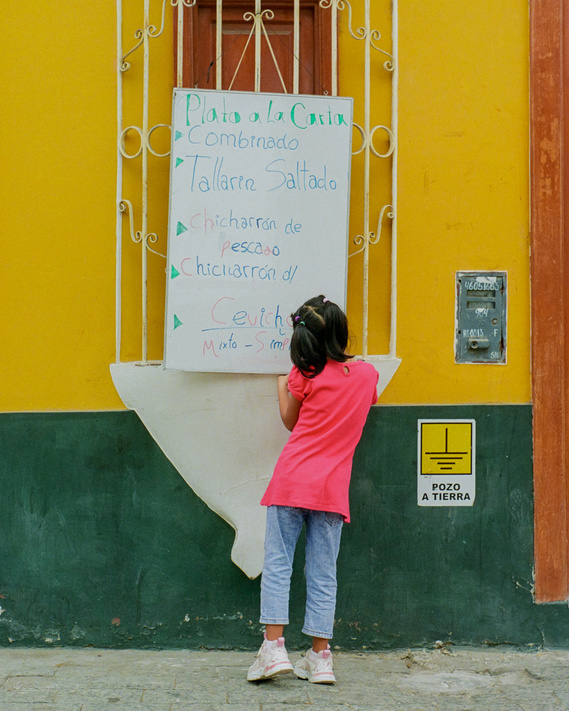 Plato a la Carta
Combinado
Tallarin Saltado
Chicharrón de
pescado
Chicharrón d/
Cevich
Mixto - Simp
POZO
A TIERRA